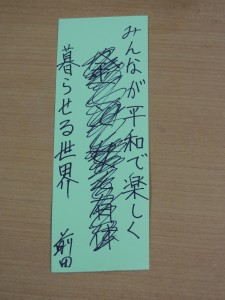 みんなが平和で楽しく
暮らせる世界
前田